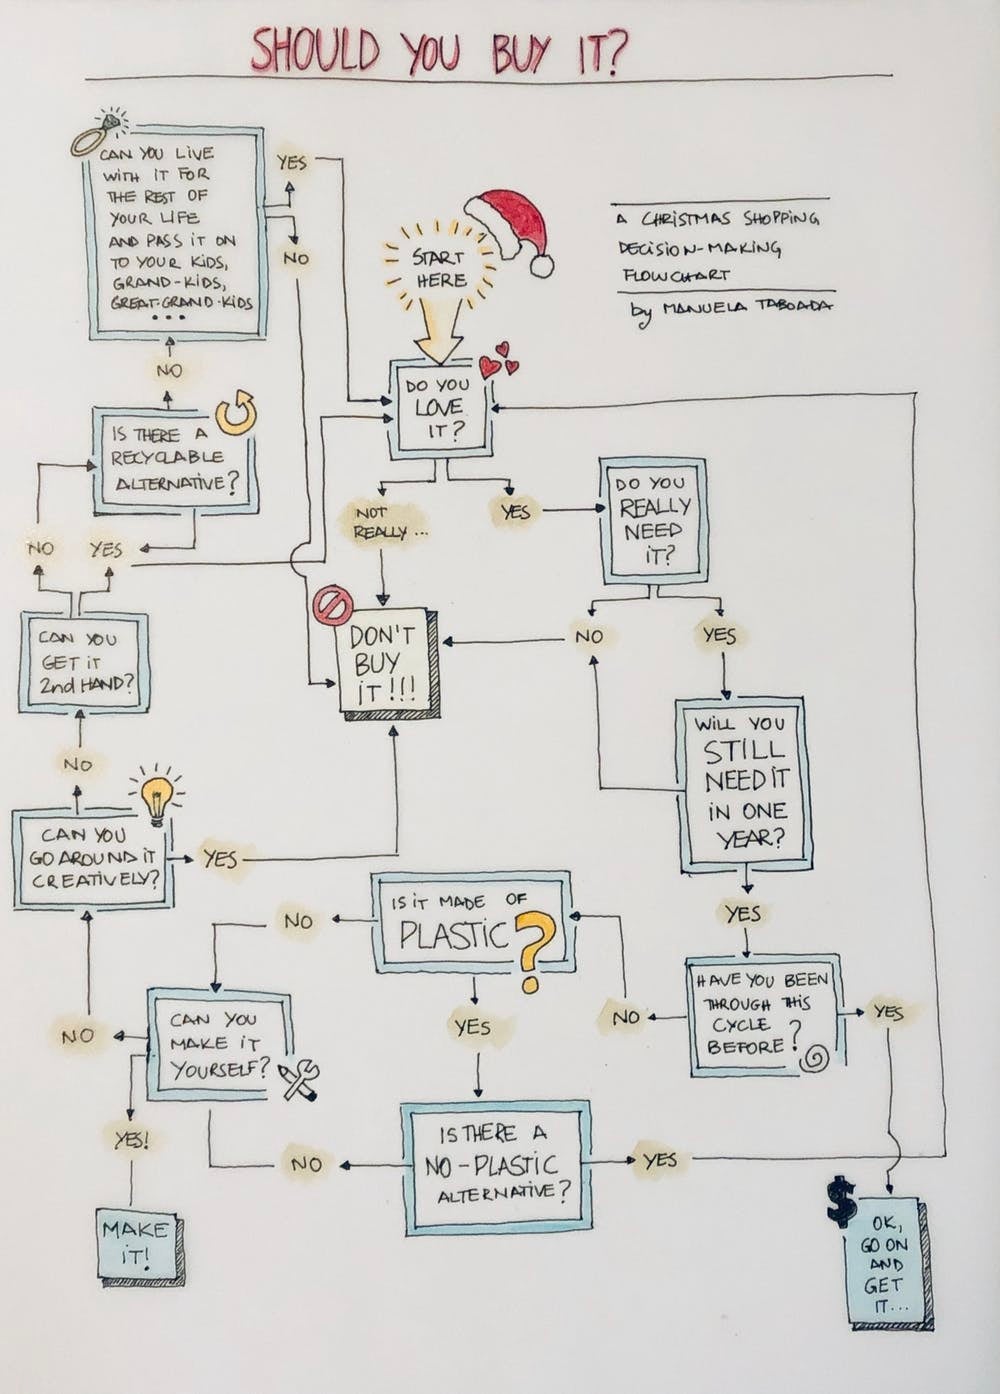 SHOULD YOU BUY IT?
CAN YOU LIVE
WITH IT FOR
THE REST OF
YOUR LIFE
AND PASS IT ON
TO YOUR KIDS,
GRAND-KIDS,
GREAT-GRAND-KIDS
...
YES
NO
START
HERE
A CHRISTMAS SHOPPING
DECISION-MAKING
FLOWCHART
by MANUELA TABOADA
NO
DO YOU
LOVE
IT?
IS THERE A
RECYCLABLE
ALTERNATIVE?
NOT
REALLY...
YES
DO YOU
REALLY
NEED
IT?
NO
YES
CAN YOU
GET IT
2nd HAND?
DON'T
BUY
IT!!!
NO
YES
WILL YOU
STILL
NEED IT
IN ONE
YEAR?
NO
CAN YOU
GO AROUND IT
CREATIVELY?
YES
IS IT MADE OF
PLASTIC?
NO
YES
HAVE YOU BEEN
THROUGH THIS
CYCLE
BEFORE?
NO
YES
CAN YOU
MAKE IT
YOURSELF?
NO
YES
YES!
IS THERE A
NO-PLASTIC
ALTERNATIVE?
NO
YES
MAKE
IT!
$
OK,
GO ON
AND
GET
IT...